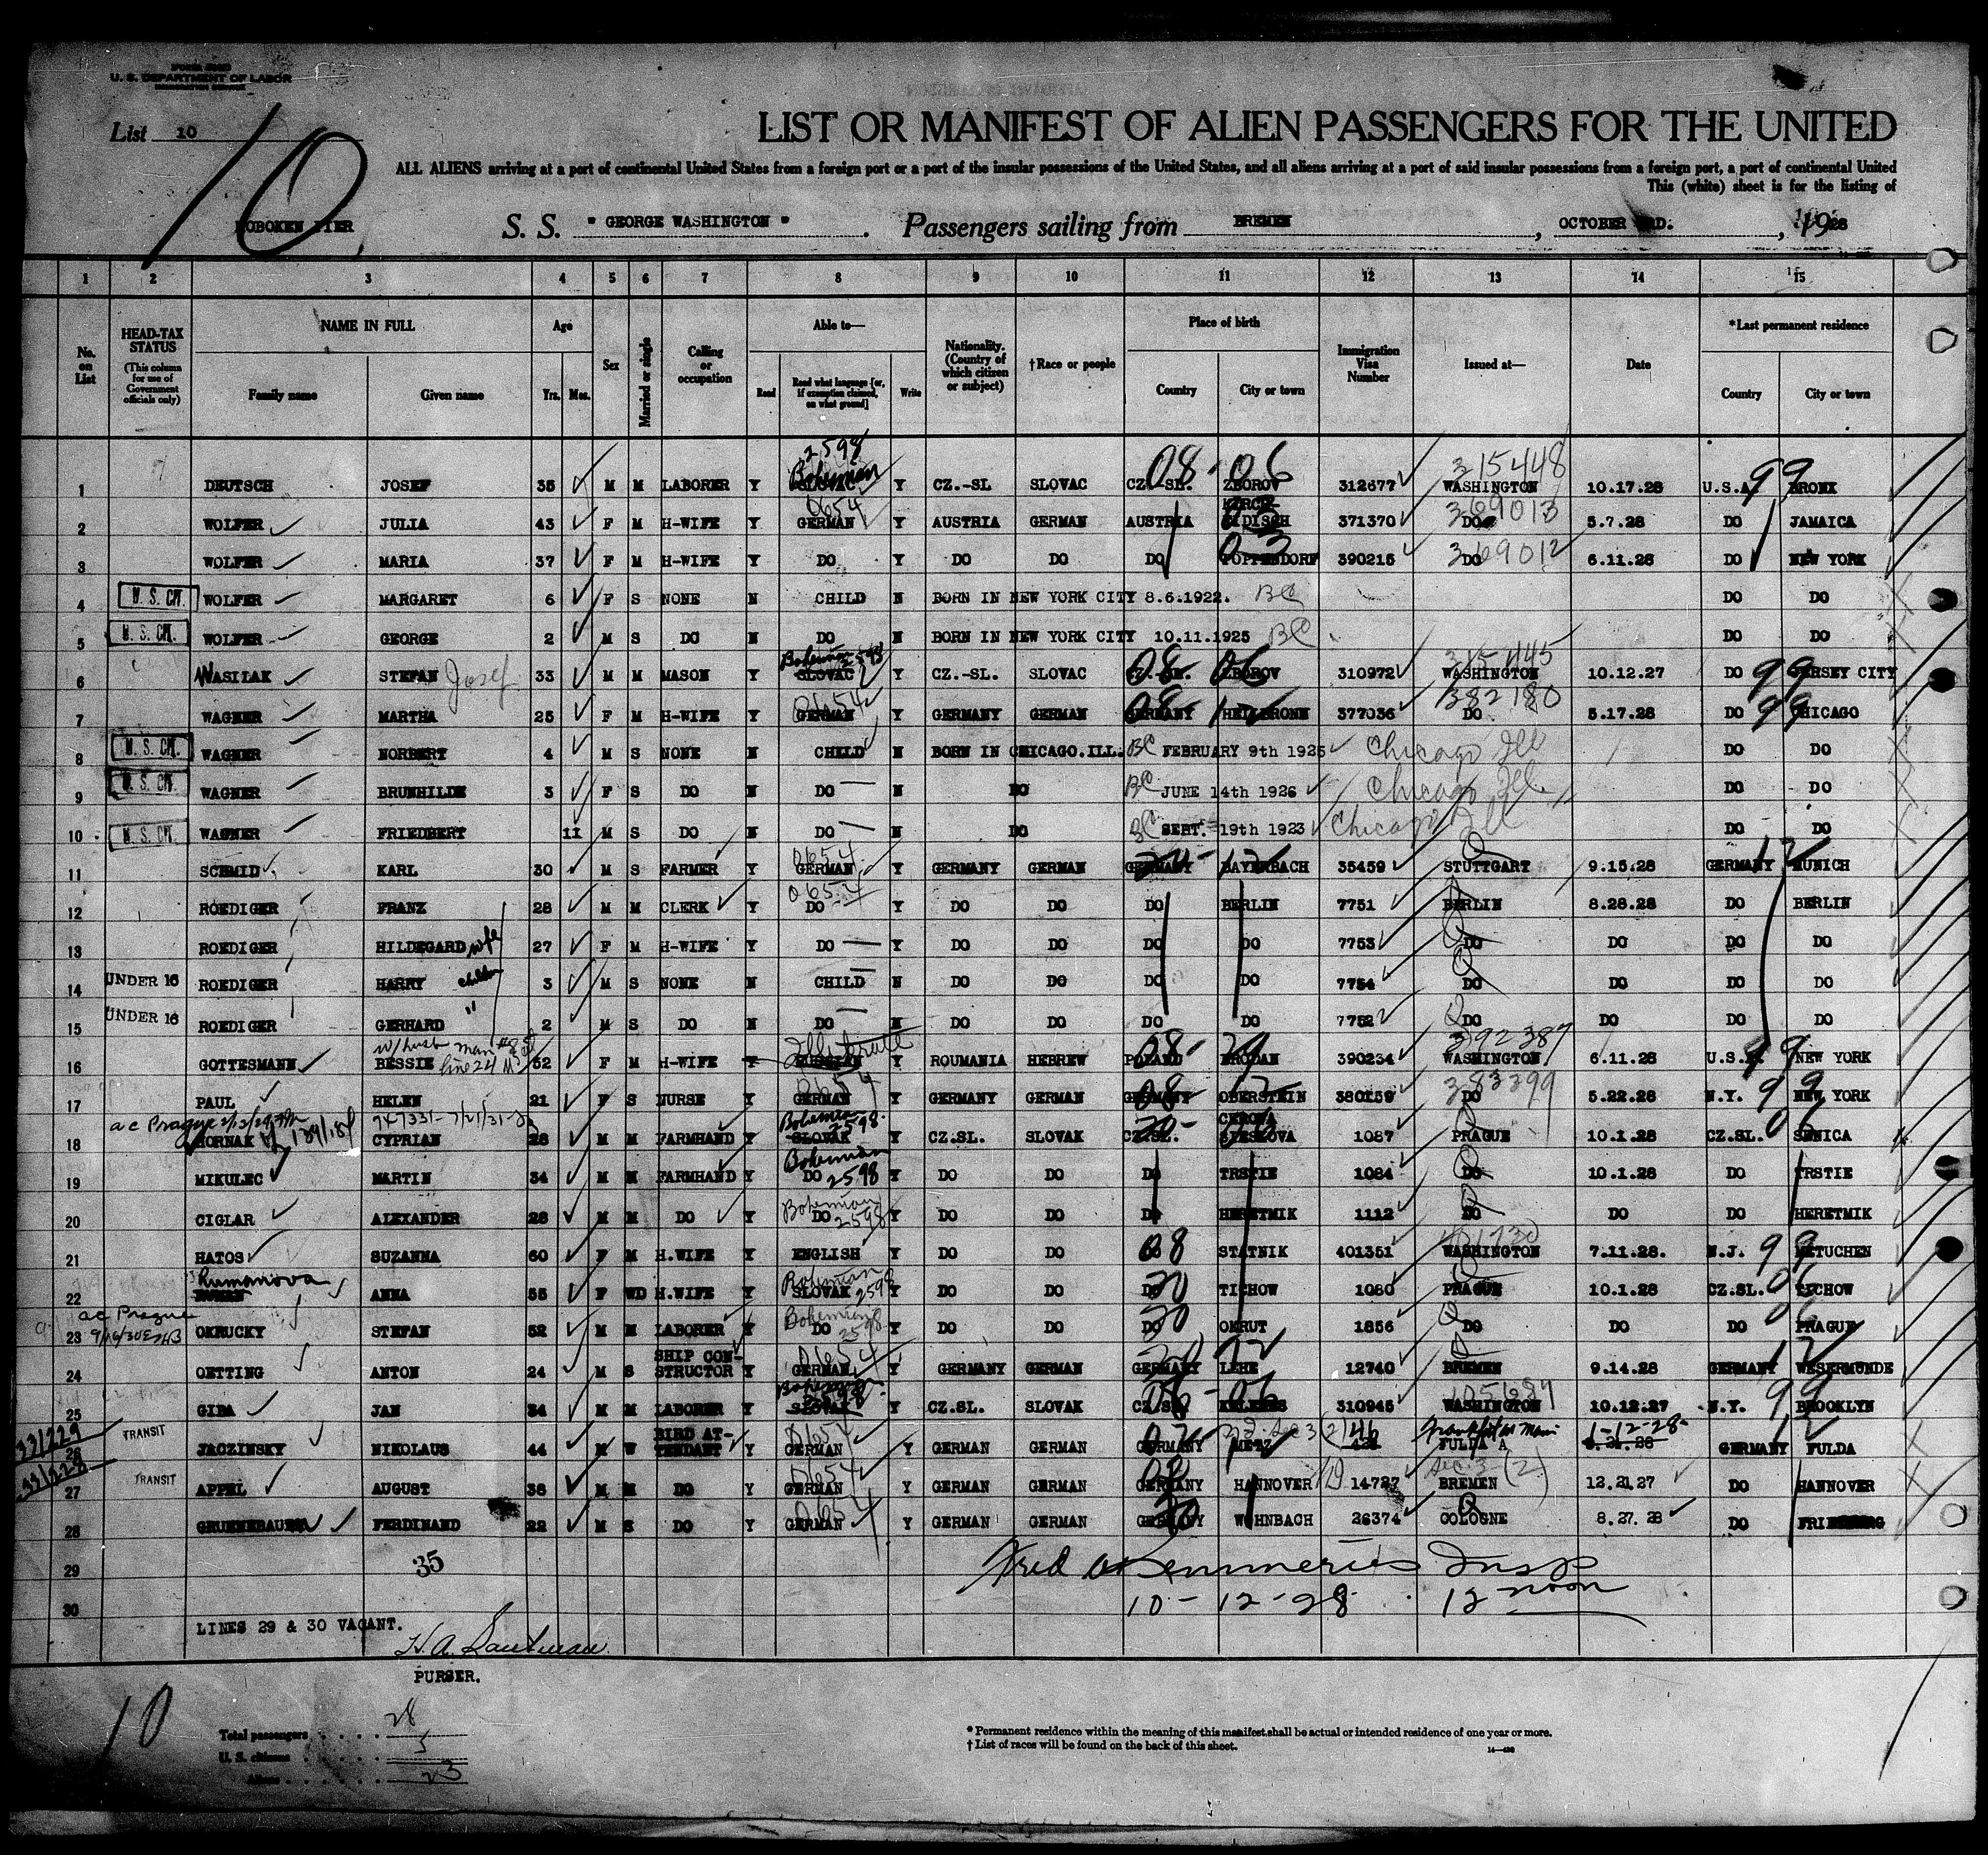 U. S. DEPARTMENT OF LABOR
List 10
10
LIST OR MANIFEST OF ALIEN PASSENGERS FOR THE UNITED
ALL ALIENS arriving at a port of continental United States from a foreign port or a port of the insular possessions of the United States, and all aliens arriving at a port of said insular possessions from a foreign port, a port of continental United
This (white) sheet is for the listing of
HOBOKEN PIER S. S. "GEORGE WASHINGTON". Passengers sailing from BREMEN, OCTOBER 3RD., 1928
1 2 3 4 5 6 7 8 9 10 11 12 13 14 15
No. on List HEAD-TAX STATUS (This column for use of Government officials only) NAME IN FULL Family name Given name Age Yrs. Mos. Sex Married or single Calling or occupation Able to— Read Read what language [or, if exemption claimed, on what ground] Write Nationality. (Country of which citizen or subject) †Race or people Place of birth Country City or town Immigration Visa Number Issued at— Date *Last permanent residence Country City or town
2598 Bohemian 08-06 315448 99
1 DEUTSCH JOSEF 35 M M LABORER Y Y CZ.-SL SLOVAC CZ.-SL. ZBOROV 312677 WASHINGTON 10.17.28 U.S.A. BRONX
0654 369013
2 WOLFER JULIA 43 F M H-WIFE Y GERMAN Y AUSTRIA GERMAN AUSTRIA 371370 DO 5.7.28 DO JAMAICA
03 369012
3 WOLFER MARIA 37 F M H-WIFE Y DO Y DO DO DO POPPENDORF 390215 DO 6.11.28 DO NEW YORK
4 U. S. CIT. WOLFER MARGARET 6 F S NONE N CHILD N BORN IN NEW YORK CITY 8.6.1922. BC DO DO
5 U. S. CIT. WOLFER GEORGE 2 M S DO N DO N BORN IN NEW YORK CITY 10.11.1925 BC DO DO
Bohemian 2598 08-06 315445 99
6 WASILAK STEFAN Josef 33 M M MASON Y SLOVAC Y CZ.-SL. SLOVAC ZBOROV 310972 WASHINGTON 10.12.27 DO JERSEY CITY
0654 382180 99
7 WAGNER MARTHA 25 F M H-WIFE Y GERMAN Y GERMANY GERMAN GERMANY HEILBRONN 377036 DO 5.17.28 DO CHICAGO
8 U. S. CIT. WAGNER NORBERT 4 M S NONE N CHILD N BORN IN CHICAGO.ILL. BC FEBRUARY 9th 1925 Chicago Ill DO DO
9 U. S. CIT. WAGNER BRUNHILDE 3 F S DO N DO N DO BC JUNE 14th 1926 Chicago Ill DO DO
10 U. S. CIT. WAGNER FRIEDBERT 11 M S DO N DO N DO BC SEPT. 19th 1923 Chicago Ill DO DO
0654
11 SCHMID KARL 30 M S FARMER Y GERMAN Y GERMANY GERMAN GERMANY BAYERBACH 35459 STUTTGART 9.15.28 GERMANY MUNICH
0654
12 ROEDIGER FRANZ 28 M M CLERK Y DO Y DO DO DO BERLIN 7751 BERLIN 8.28.28 DO BERLIN
13 ROEDIGER HILDEGARD wife 27 F M H-WIFE Y DO Y DO DO DO DO 7753 DO DO DO DO
14 UNDER 16 ROEDIGER HARRY children 3 M S NONE N CHILD N DO DO DO DO 7754 DO DO DO DO
15 UNDER 16 ROEDIGER GERHARD " 2 M S DO N DO N DO DO DO DO 7752 DO DO DO DO
w/husb line 24 Illiterate 08 392387 99
16 GOTTESMANN BESSIE 52 F M H-WIFE ROUMANIA HEBREW POLAND BRODAN 390234 WASHINGTON 6.11.28 U.S.A. NEW YORK
0654 383299 99
17 PAUL HELEN 21 F S NURSE Y GERMAN Y GERMANY GERMAN GERMANY OBERSTEIN 380159 DO 5.22.28 N.Y. NEW YORK
Bohemian 2598 06
18 HORNAK CYPRIAN 28 M M FARMHAND Y SLOVAK Y CZ.SL. SLOVAK CZ.SL. 1087 PRAGUE 10.1.28 CZ.SL. SENICA
Bohemian 2598
19 MIKULEC MARTIN 34 M M FARMHAND Y DO Y DO DO DO TRSTIE 1084 DO 10.1.28 DO TRSTIE
Bohemian 2598
20 CIGLAR ALEXANDER 28 M M DO Y DO Y DO DO DO HERETMIK 1112 DO DO DO HERETMIK
08 99
21 HATOS SUZANNA 60 F M H.WIFE Y ENGLISH Y DO DO STATNIK 401351 WASHINGTON 7.11.28. N.J. METUCHEN
Rumanova Bohemian 2598 20 06
22 ANNA 55 F WD H.WIFE Y SLOVAK Y DO DO DO TICHOW 1080 PRAGUE 10.1.28 CZ.SL. TICHOW
ac Prague Bohemian 2598 20 06
23 OKRUCKY STEFAN 52 M M LABORER Y DO Y DO DO DO OKRUT 1856 DO DO DO PRAGUE
0654
24 OETTING ANTON 24 M S SHIP CONSTRUCTOR Y GERMAN Y GERMANY GERMAN GERMANY LEHE 12740 BREMEN 9.14.28 GERMANY WESERMUNDE
Bohemian 2598 06 105684 99
25 GIBA JAN 34 M M LABORER Y SLOVAK Y CZ.SL. SLOVAK CZ.SL. 310945 WASHINGTON 10.12.27 N.Y. BROOKLYN
0654 Frankfort a Main 1-12-28
26 TRANSIT JACZINSKY NIKOLAUS 44 M W BIRD ATTENDANT Y GERMAN Y GERMAN GERMAN GERMANY METZ FULDA GERMANY FULDA
0654 Sec. 3 (2)
27 TRANSIT APPEL AUGUST 38 M M DO Y GERMAN Y GERMAN GERMAN GERMANY HANNOVER 14727 BREMEN 12.21.27 DO HANNOVER
0654
28 FERDINAND 22 M S DO Y GERMAN Y GERMAN GERMAN GERMANY WOHNBACH 26374 COLOGNE 8.27.28 DO
29 35 Insp
30 10-12-28 12 noon
LINES 29 & 30 VACANT.
PURSER.
10
Total passengers 28
U. S. citizens 5
Aliens 23
* Permanent residence within the meaning of this manifest shall be actual or intended residence of one year or more.
† List of races will be found on the back of this sheet.